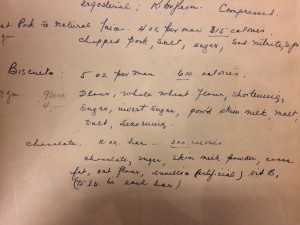 ergosterial; Riboflavin. Compressed.
at Pork To Natural Juices. 4 oz per man 315 calories.
gm chopped pork, salt, sugar, Sod nitrite,
Biscuits: 5 oz per man 610 calories.
gm Flour, whole wheat flour, shortening,
4 Sugar, invert sugar, powd skim milk, malt,
salt, leavening.
chocolate, 2 oz. bar — calories
chocolate, sugar, skim milk powder, cocoa
fat, oat flour, vanillin (artificial), vit B,
( to be each bar)